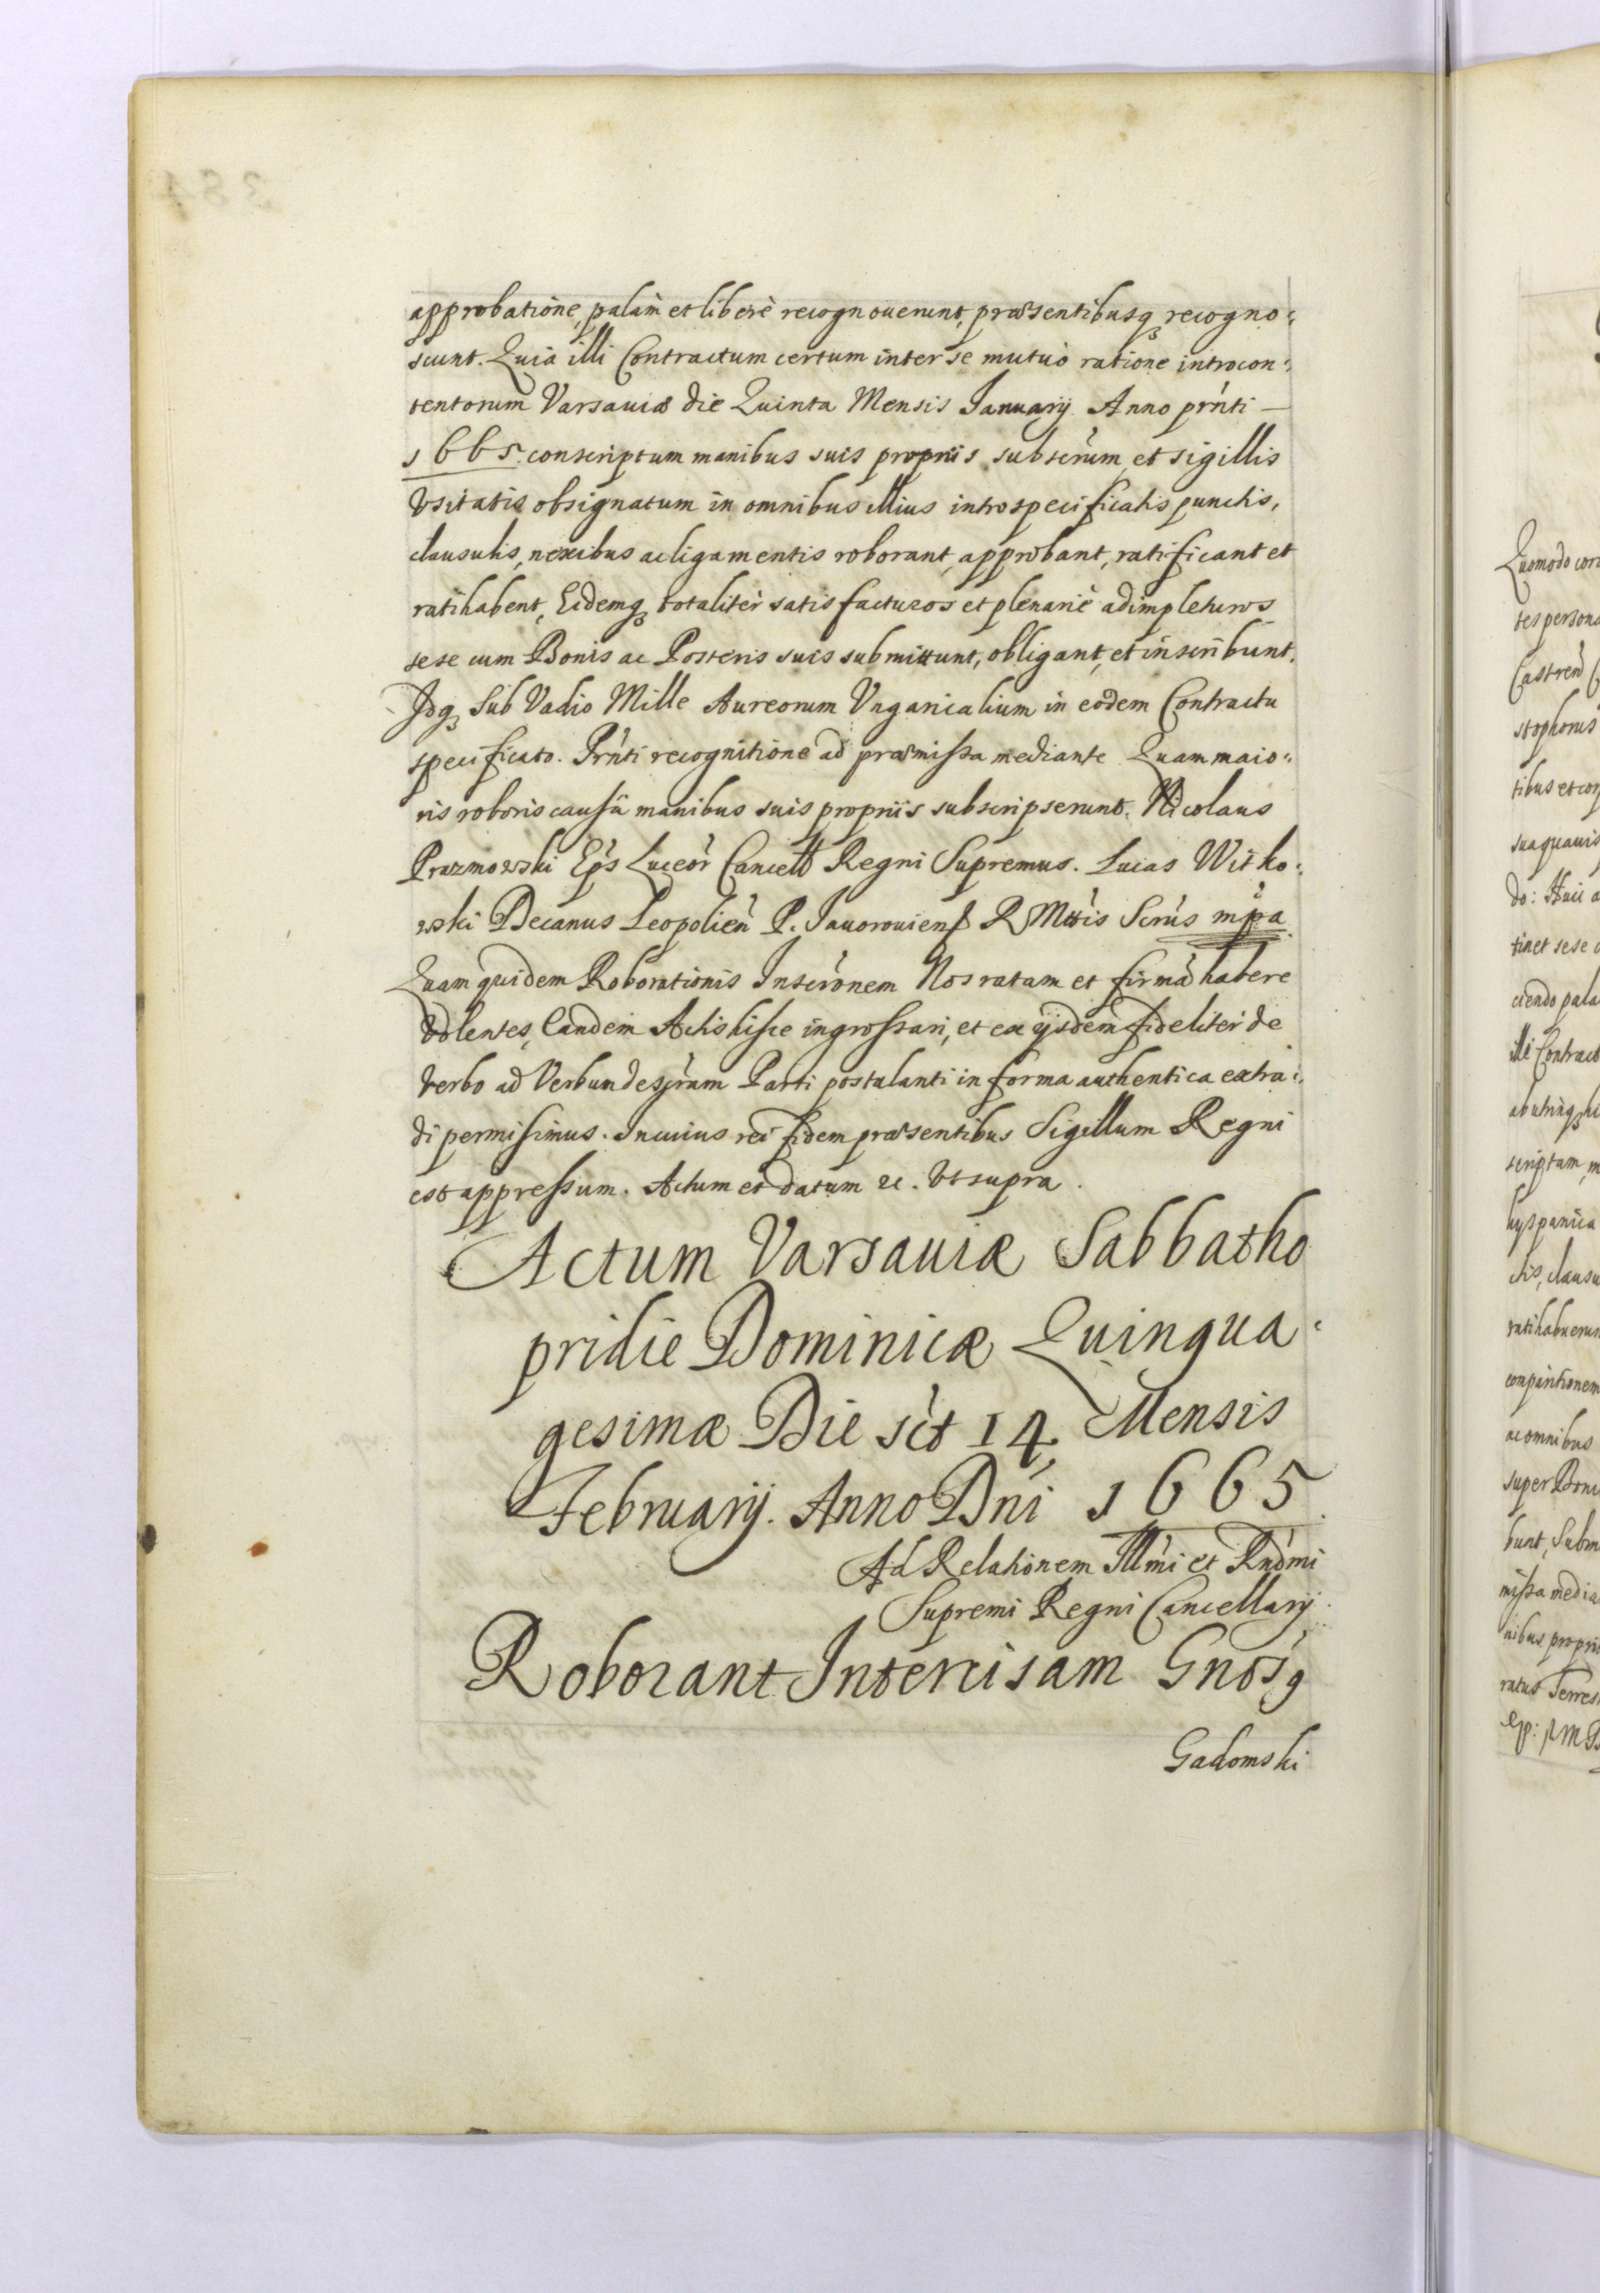 approbatione, palàm et liberè recognouerunt, præsentibusq recogno:
scunt. Quia illi Contractum certum inter se mutuò ratione introcon:
tentorum Varsauiæ die Quinta Mensis Januarij Anno prnti
1665. conscriptum manibus suis proprijs subscrum et sigillis
Vsitatis obsignatum in omnibus illius introspecificatis punctis,
clausulis, nexibus ac ligamentis roborant, approbant, ratificant et
ratihabent, Eidemq totalitèr satisfacturos et plenariè adimpleturos
sese cum Bonis ac Posteris suis submittunt, obligant, et inscribunt.
Idq sub Vadio Mille Aureorum Vngaricalium in eodem Contractu
specificato. Prnti recognitione ad præmissa mediante Quam maio:
ris roboris causâ manibus suis proprijs subscripserunt. Nicolaus
Prazmowski Eps Luceor Cancell Regni Supremus. Lucas Witko:
wski Decanus Leopolien P. Jauorouiens R Mttis Scrus mpa
Quam quidem Roborationis Inscronem Nos ratam et firma habere
Volentes, Eandem Actis hisce ingrossari, et ex ijsdem fideliter de
Verbo ad Verbum descram Parti postulanti in forma authentica extra:
di permisimus. In cuius rei fidem præsentibus Sigillum Regni
est appressum. Actum et datum &c. Vt supra.
Actum Varsauiæ Sabbatho
pridie Dominicæ Quinqua:
gesimæ Die sct 14 Mensis
Februarij. Anno Dni 1665.
Ad Relationem Illmi et Rndmi
Supremi Regni Cancellarij
Roborant Intercisam Gnosq
Gadomski